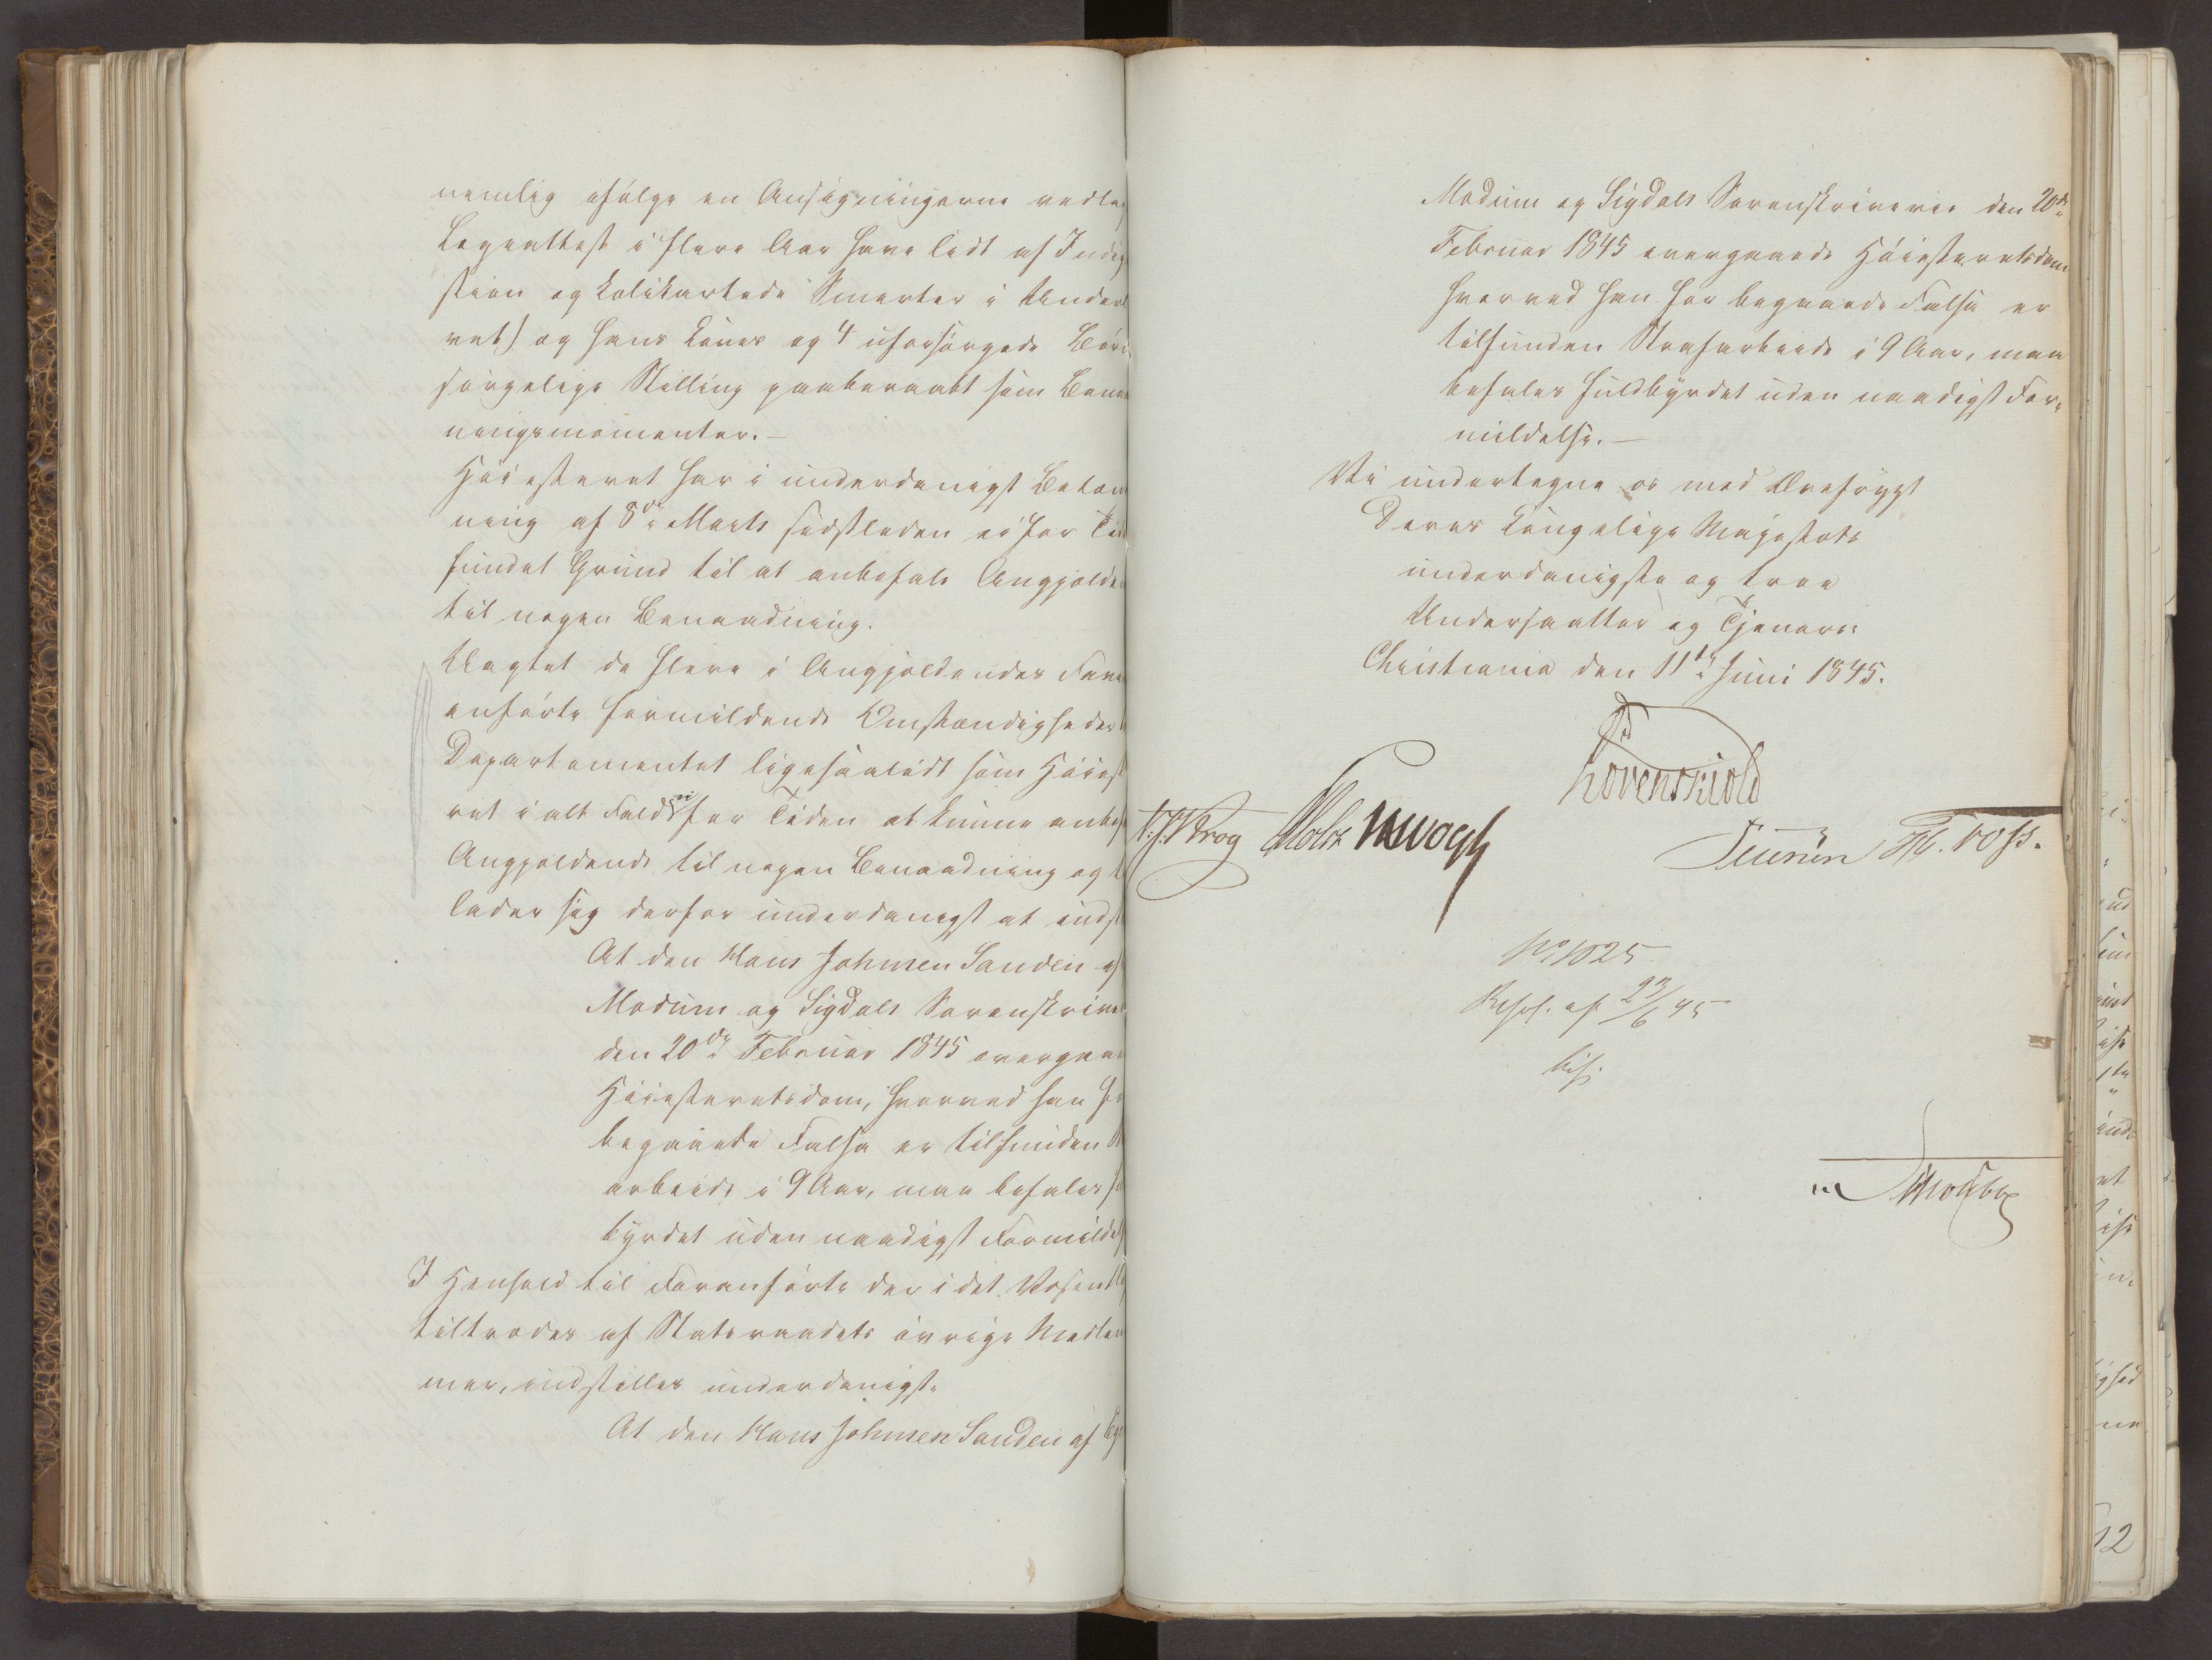 nemlig ifølge en Ansøgningerne vedlag
Lægeattest i flere Aar have lidt af Indig
stion og kolikartede Smerter i Underl
vet) og hans Kones og 4 uforsørgede Børn
sørgelige Stilling paaberaabt som Benaa
ningsmomenter.-
Høiesteret har i underdanigst Betæn
ning af 8de Marts sidstleden ei for Tid
fundet Grund til at anbefale Angjælde
til nogen Benaadning.
Uagtet de flere i Angjældendes Fave
anførte formildende Omstændigheder
Departementet ligesaalidt som Høiest
ret i alt Fald ei for Tiden at kunne anbef
Angjældende til nogen Benaadning og
lader sig derfor underdanigst at indst
At den Hans Johnsen Sanden af
Modum og Sigdals Sorenskrive
den 20de Februar 1845 overgaae
Høiesteretsdom, hvorved han fo
begaaede Falsa er tilfunden St
arbeide i 9 Aar, maa befales fu
byrdet uden naadigst Formildel
I Henhold til Foranførte der i det Væsentlig
tiltrædes af Statsraadets øvrige Medlem
mer, indstilles underdanigst:
At den Hans Johnsen Sanden af
Modum og Sigdals Sorenskriverie den 20de
Februar 1845 overgaaede Høiesteretsdom
hvorved han for begaaede Falsa er
tilfunden Strafarbeide i 9 Aar, maa
befales fuldbyrdet uden naadigst For-
mildelse.-
Vi undertegne os med Ærefrygt
Deres Kongelige Majestæts
underdanigste og troe
Undersaatter og Tjenere
Christiania den 11te Juni 1845.
Løvenskiold
Krog Holst JHVogt
H. Foss.
No 1025
Resol. af 27/6 45